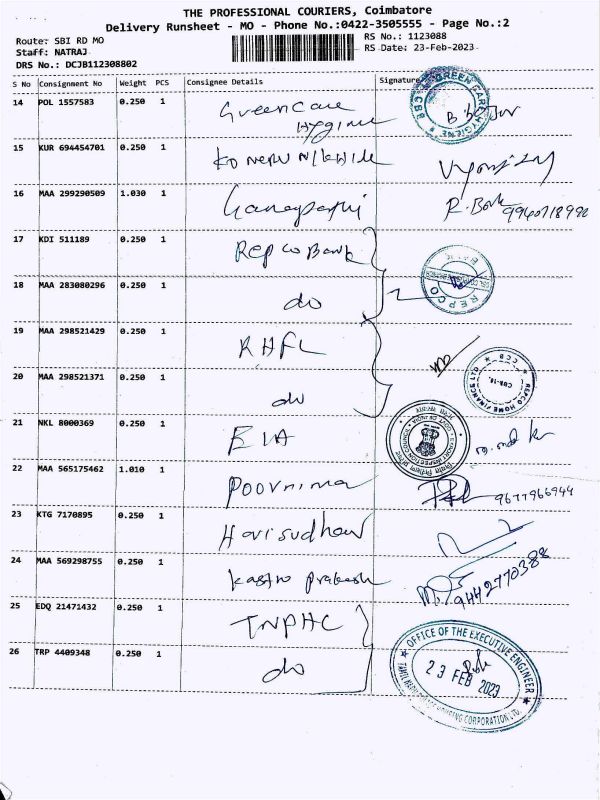 THE PROFESSIONAL COURIERS, Coimbatore
Delivery Runsheet - MO - Phone No.:0422-3505555 - Page No.:2
Route: SBI RD MO
RS No.: 1123088
Staff: NATRAJ
RS Date: 23-Feb-2023
DRS No.: DCJB112308802
S No Consignment No Weight PCS Consignee Details Signature
14 POL 1557583 0.250 1 Green Care
Hygiene
GREEN CARE HYGIENE CBE
15 KUR 694454701 0.250 1
16 MAA 299290509 1.030 1 Ganapathi
9940718992
17 KDI 511189 0.250 1 Repco Bank
REPCO BANK
18 MAA 283080296 0.250 1 do
19 MAA 298521429 0.250 1 RHFL
REPCO HOME FINANCE LTD CBE-18 CCB
20 MAA 298521371 0.250 1 do
21 NKL 8000369 0.250 1 EIA
22 MAA 565175462 1.010 1 Poornima
9677966944
23 KTG 7170895 0.250 1 Harisudhan
24 MAA 569298755 0.250 1 Kastro Prakash
9442770388
25 EDQ 21471432 0.250 1 TNPHC
26 TRP 4409348 0.250 1 do
OFFICE OF THE EXECUTIVE ENGINEER
23 FEB 2023
CORPORATION LTD.